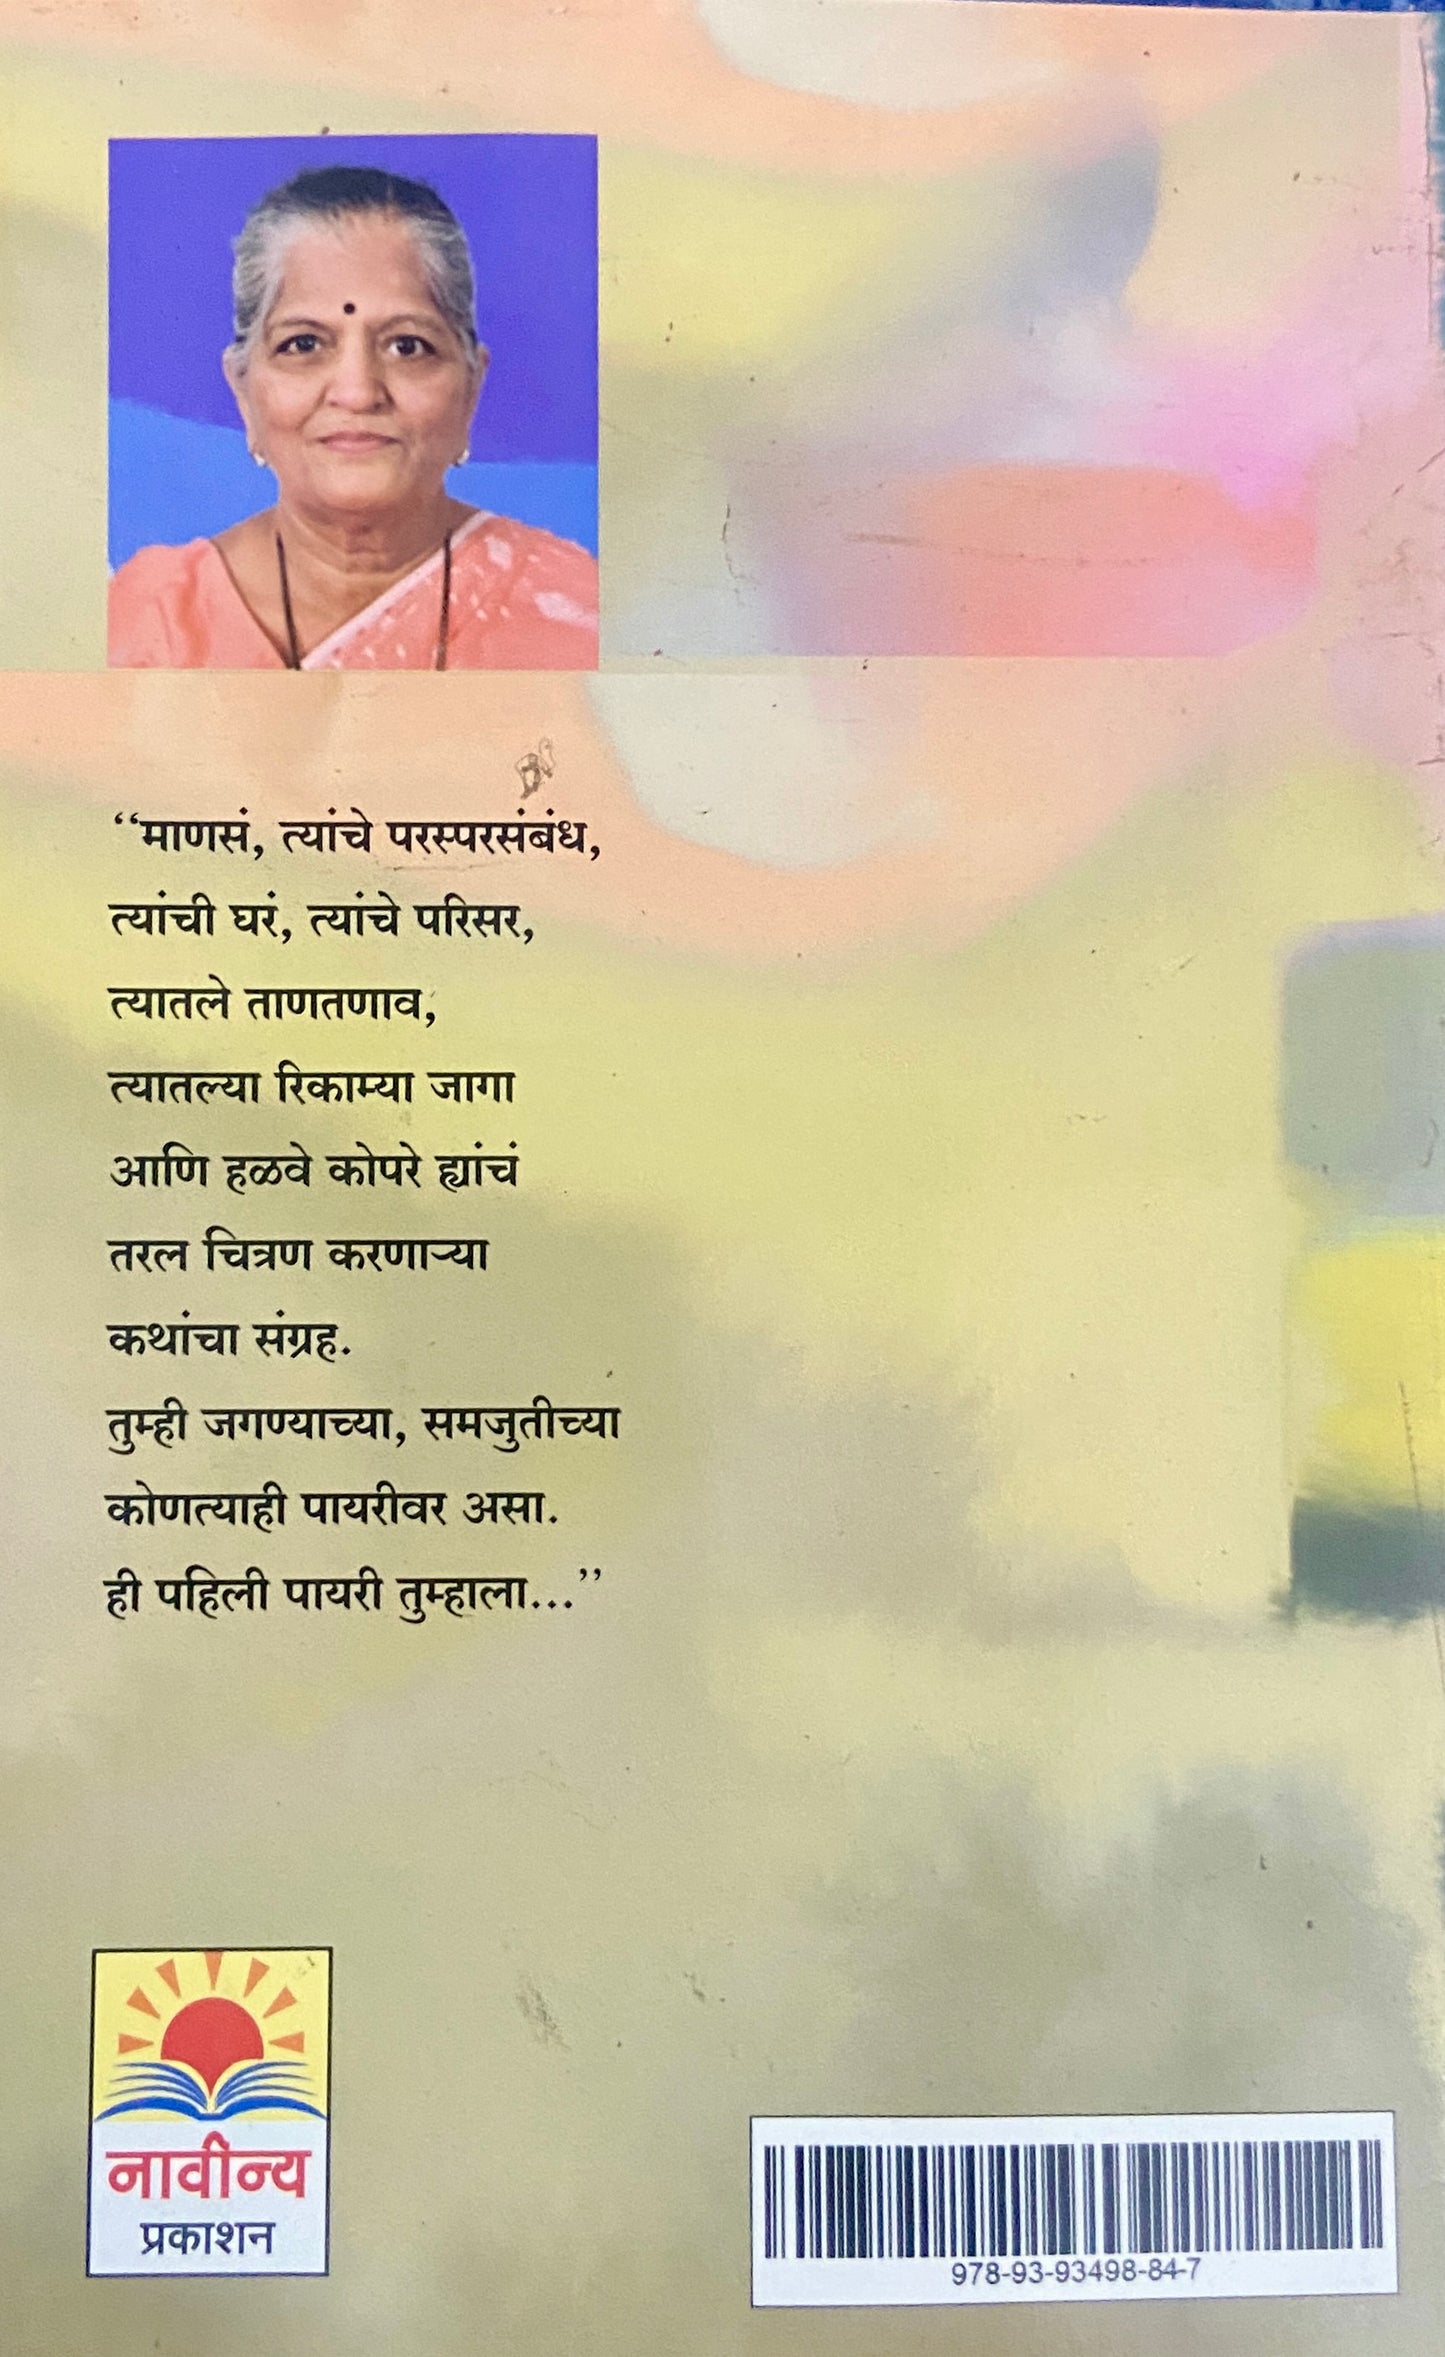 “माणसं, त्यांचे परस्परसंबंध,
त्यांची घरं, त्यांचे परिसर,
त्यातले ताणतणाव,
त्यातल्या रिकाम्या जागा
आणि हळवे कोपरे ह्यांचं
तरल चित्रण करणाऱ्या
कथांचा संग्रह.
तुम्ही जगण्याच्या, समजुतीच्या
कोणत्याही पायरीवर असा.
ही पहिली पायरी तुम्हाला...”
नावीन्य
प्रकाशन
978-93-93498-84-7